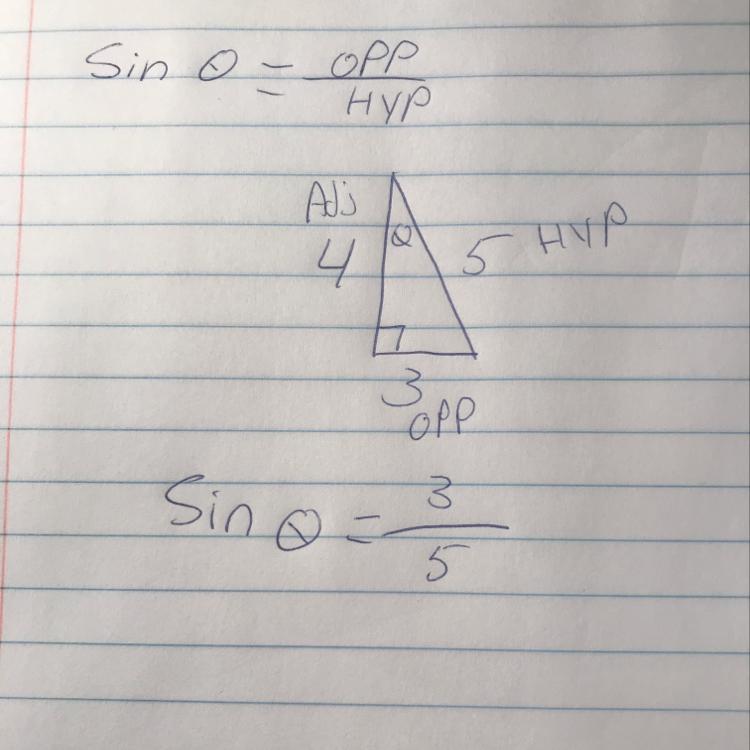 Sin θ = OPP / HYP
Adj
4
θ
5 HYP
3
OPP
Sin θ = 3 / 5